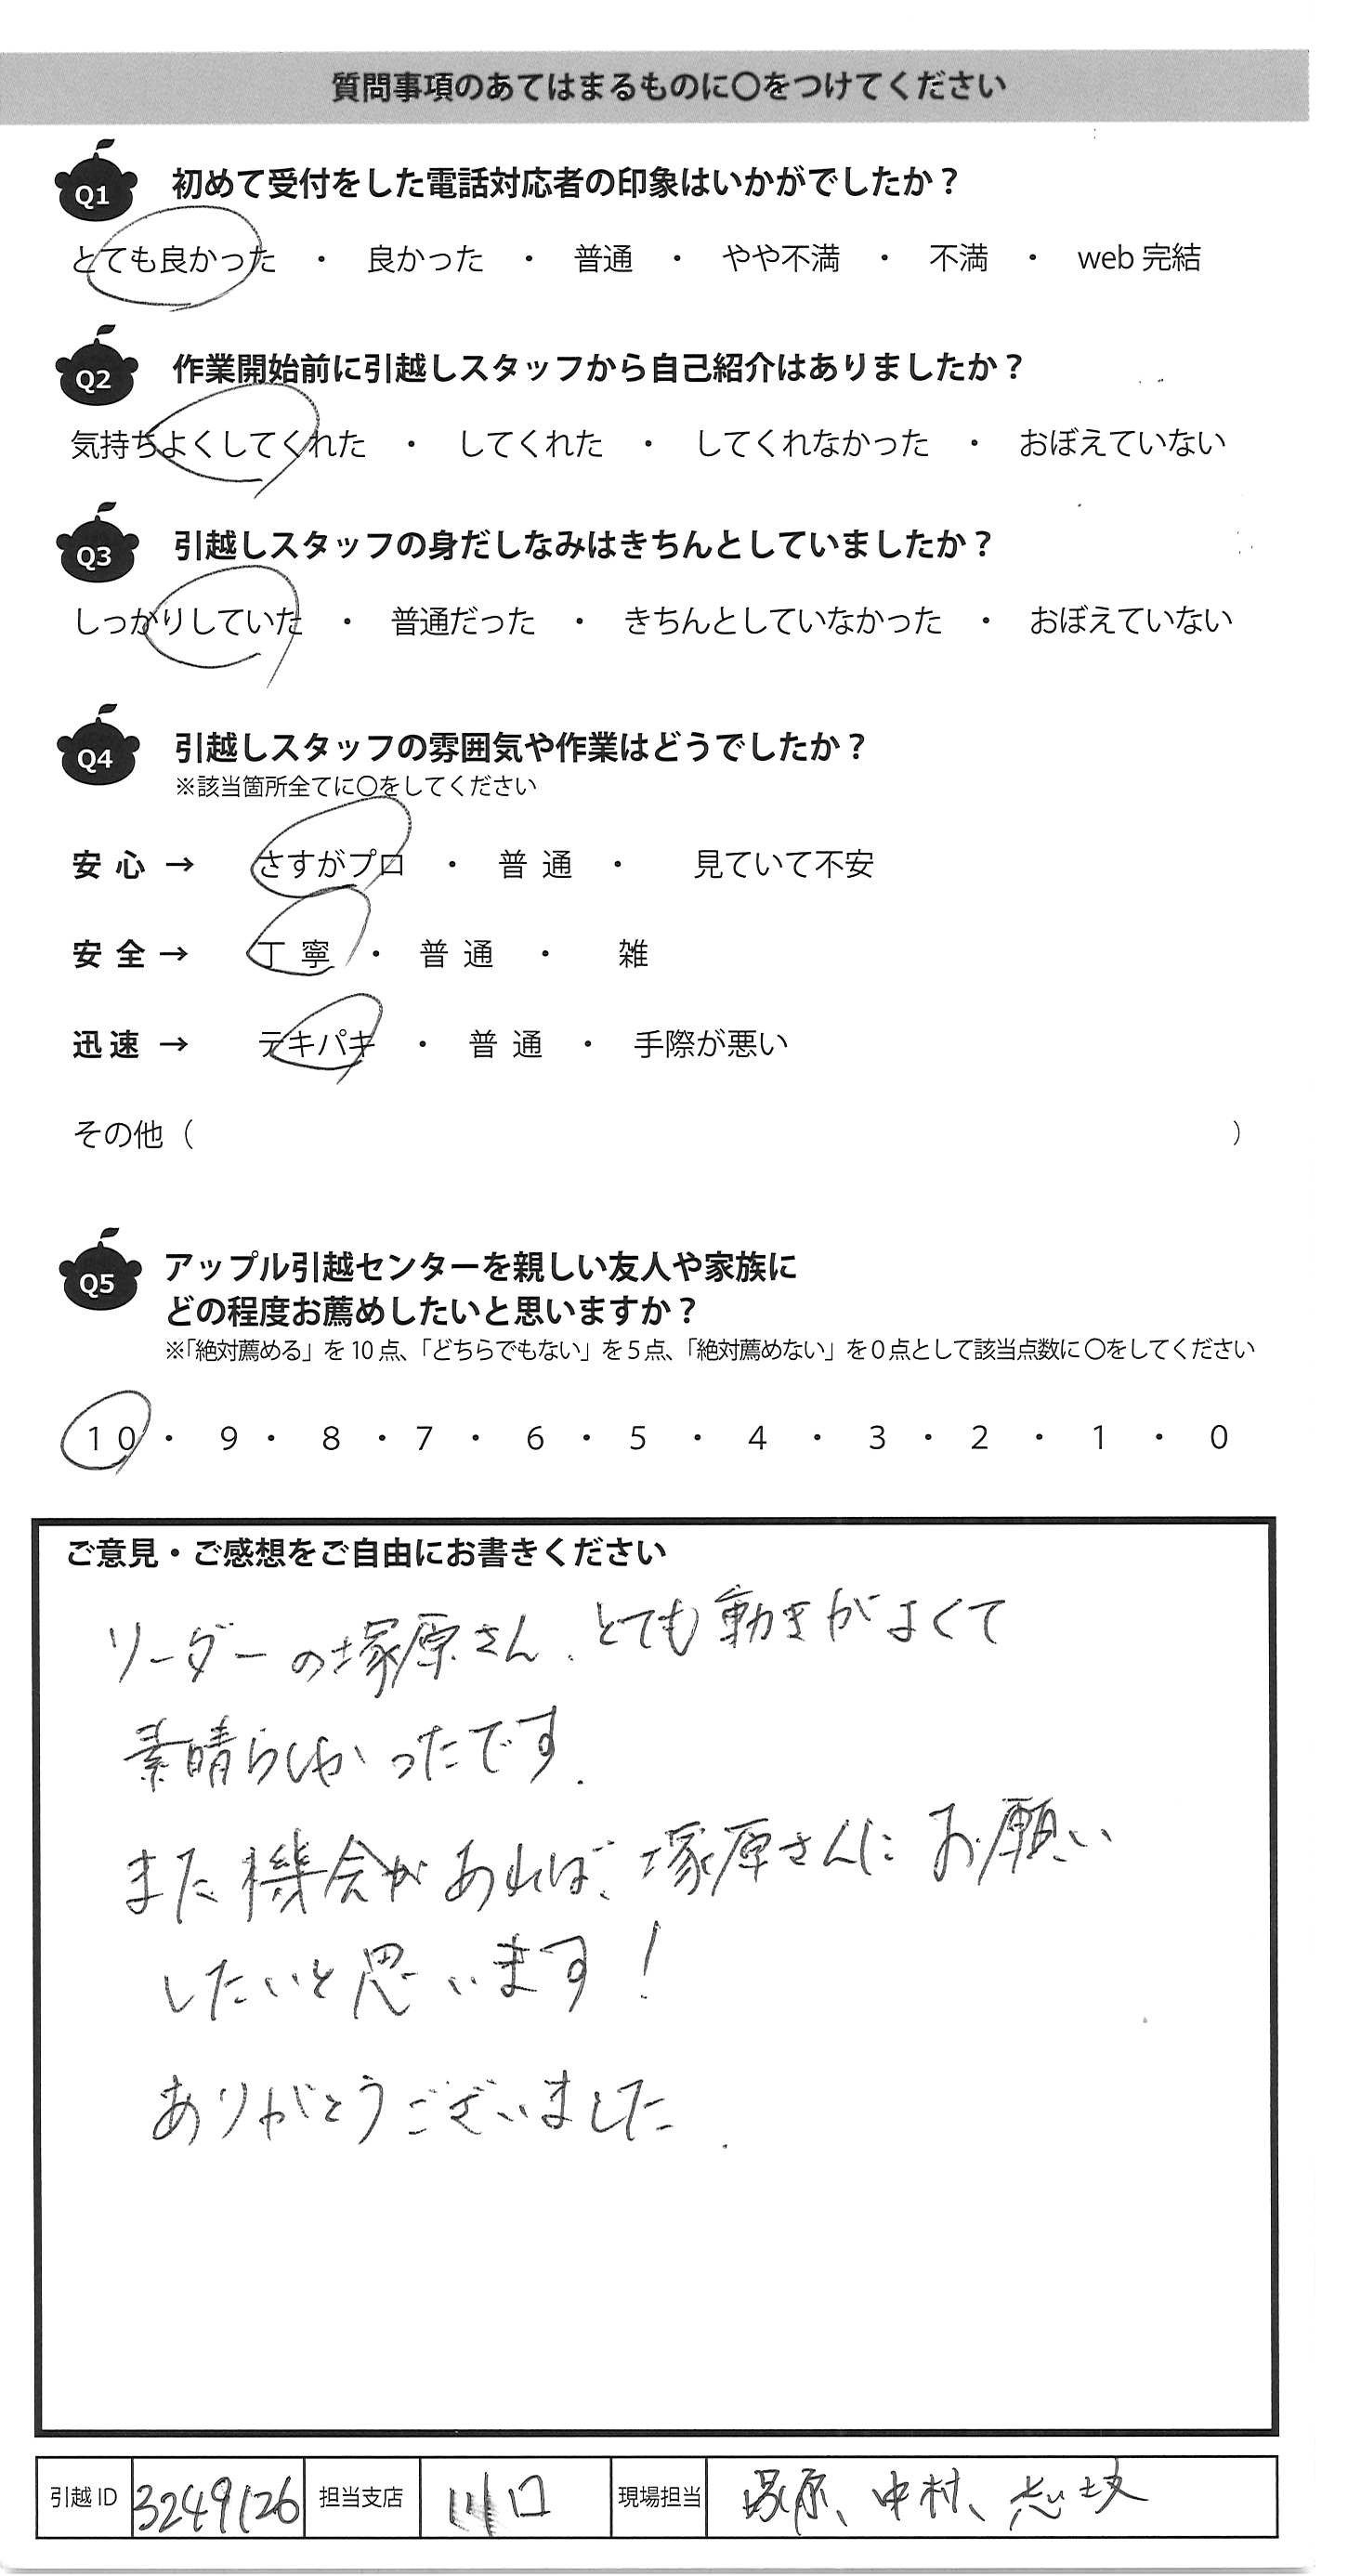 質問事項のあてはまるものに〇をつけてください
Q1 初めて受付をした電話対応者の印象はいかがでしたか？
とても良かった ・ 良かった ・ 普通 ・ やや不満 ・ 不満 ・ web 完結
Q2 作業開始前に引越しスタッフから自己紹介はありましたか？
気持ちよくしてくれた ・ してくれた ・ してくれなかった ・ おぼえていない
Q3 引越しスタッフの身だしなみはきちんとしていましたか？
しっかりしていた ・ 普通だった ・ きちんとしていなかった ・ おぼえていない
Q4 引越しスタッフの雰囲気や作業はどうでしたか？
※該当箇所全てに〇をしてください
安心 → さすがプロ ・ 普通 ・ 見ていて不安
安全 → 丁寧 ・ 普通 ・ 雑
迅速 → テキパキ ・ 普通 ・ 手際が悪い
その他（ ）
Q5 アップル引越センターを親しい友人や家族に
どの程度お薦めしたいと思いますか？
※「絶対薦める」を 10 点、「どちらでもない」を 5 点、「絶対薦めない」を 0 点として該当点数に 〇をしてください
10 ・ 9 ・ 8 ・ 7 ・ 6 ・ 5 ・ 4 ・ 3 ・ 2 ・ 1 ・ 0
ご意見・ご感想をご自由にお書きください
リーダーの塚原さん、とても動きがよくて
素晴らしかったです.
また機会があれば、塚原さんにお願い
したいと思います！
ありがとうございました.
引越 ID 3249126 担当支店 川口 現場担当 塚原、中村、